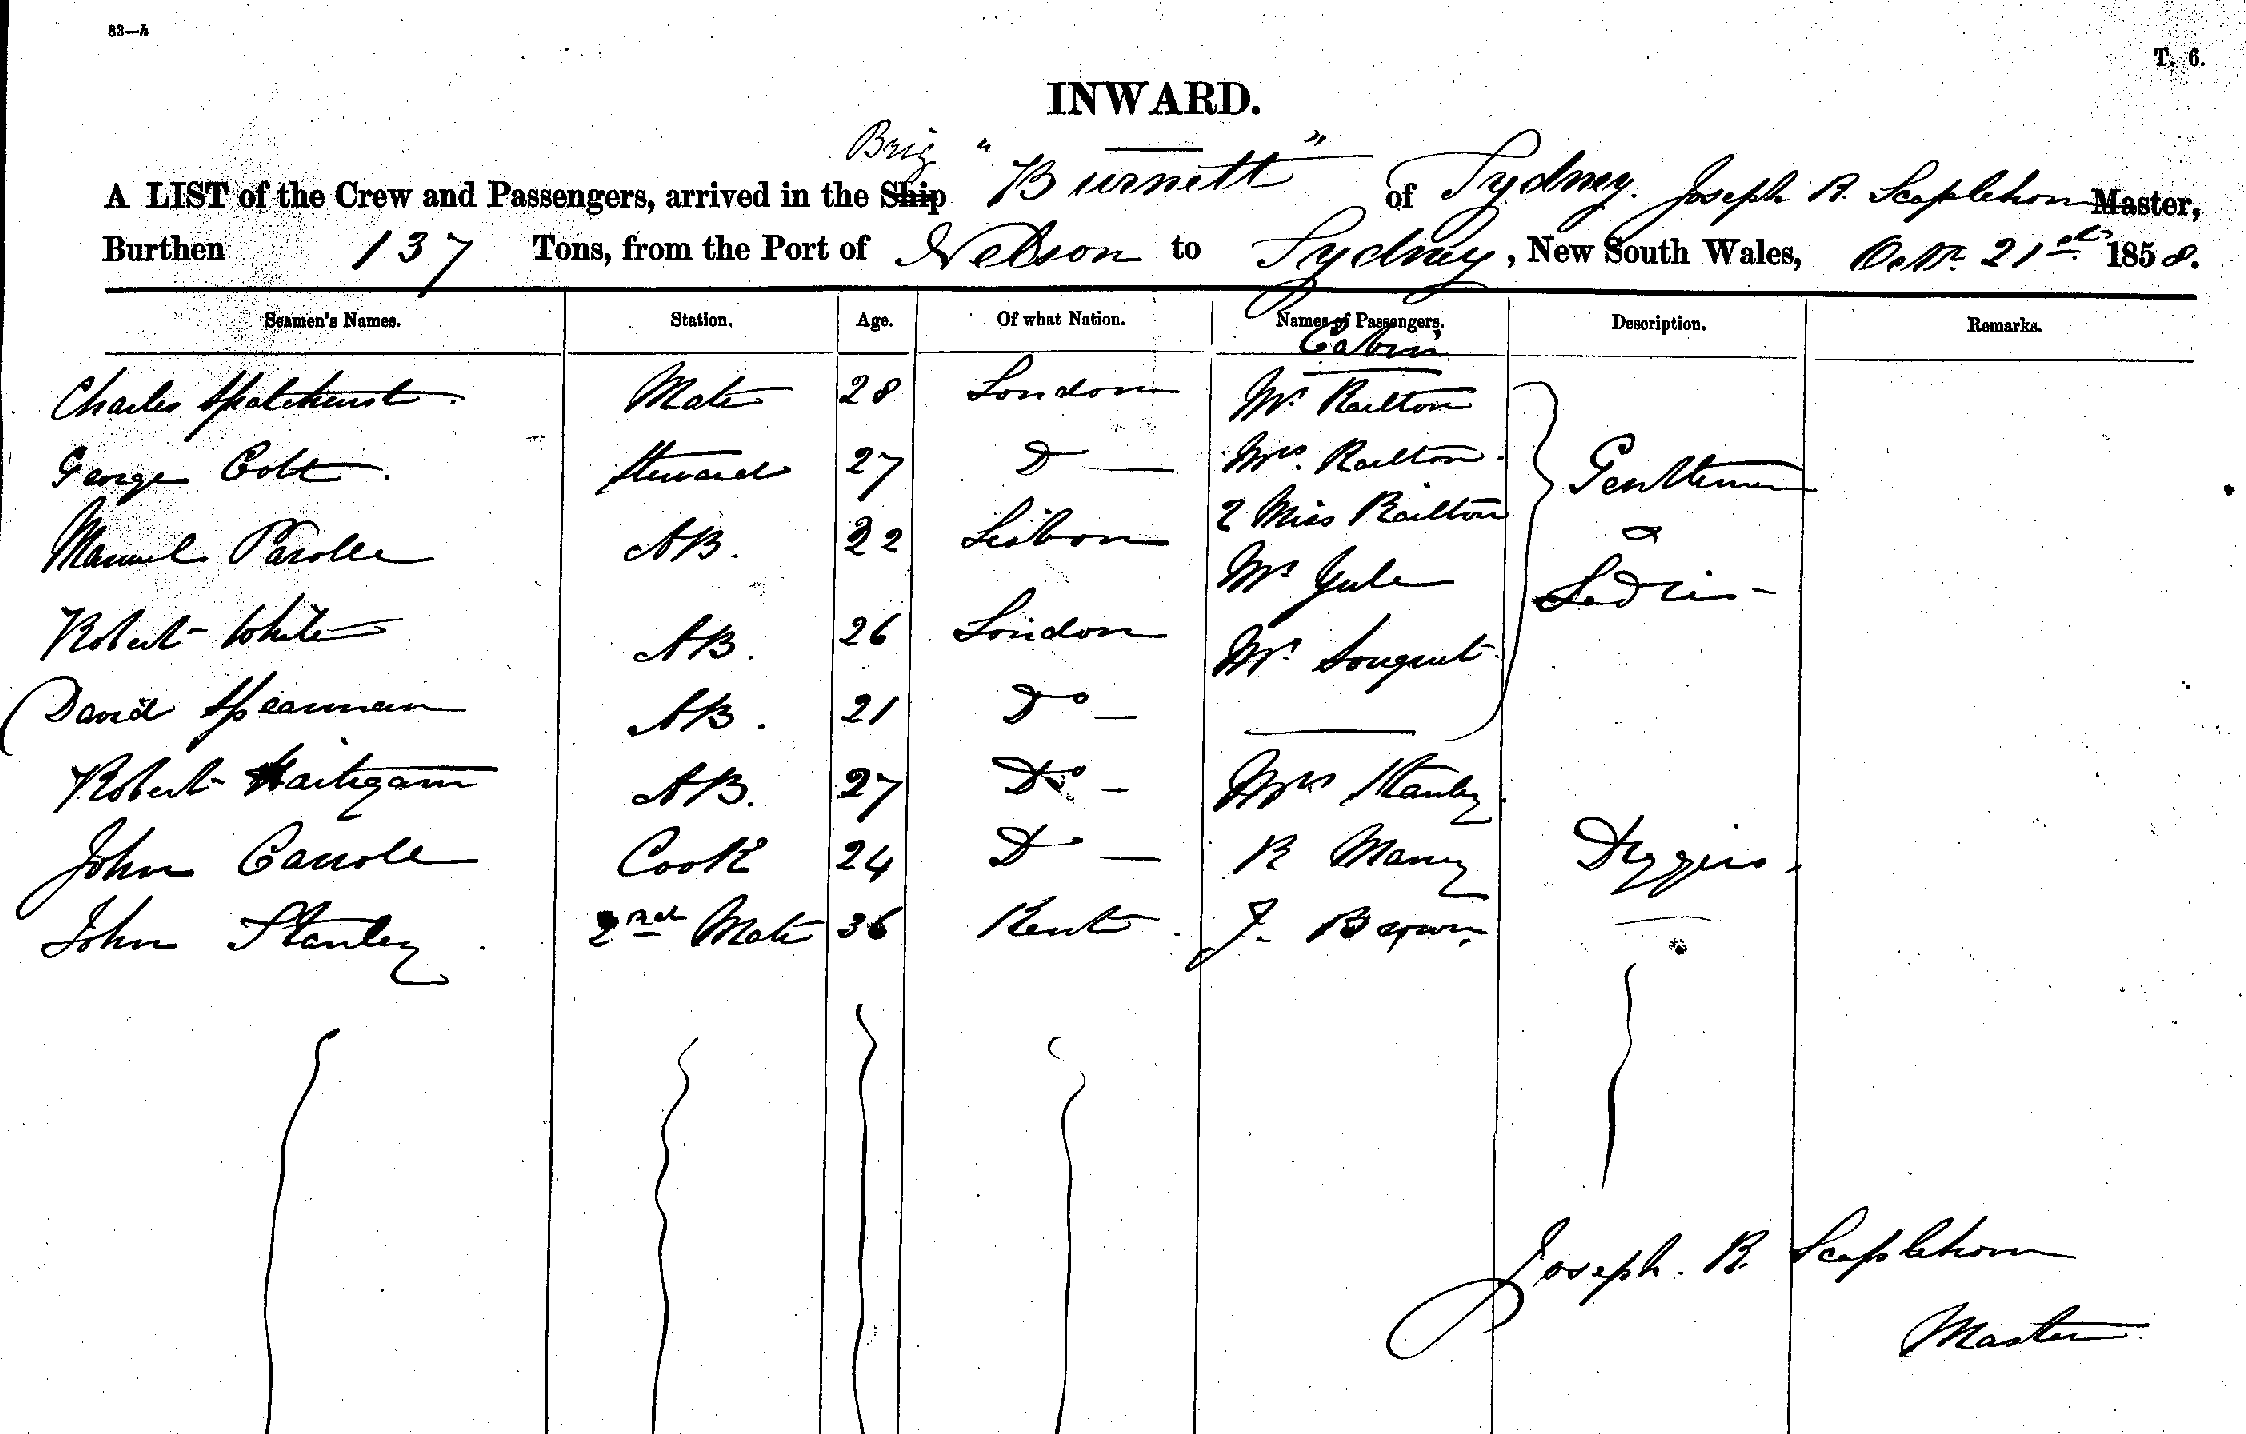 83—A
T. 6.
INWARD.
Brig
A LIST of the Crew and Passengers, arrived in the Ship "Burnett" of Sydney. Joseph R. Scaplehorn Master,
Burthen 137 Tons, from the Port of Nelson to Sydney, New South Wales, 21st 1858.
Seamen's Names. Station. Age. Of what Nation. Names of Passengers. Description. Remarks.
Cabin
Charles Mate 28 London Mr Railton
George Cobb Steward 27 D — Mrs. Railton Gentlemen
Manuel AB. 22 Lisbon 2 Miss Railton &
Robert White AB. 26 London Mr Yule Ladies
David Spearman AB. 21 Do — Mr
Robert AB. 27 Do — Mrs Stanley
John Carroll Cook 24 Do — R Diggers
John Stanley 2nd Mate 36 Kent J. Brown
Joseph. R. Scaplehorn
Master